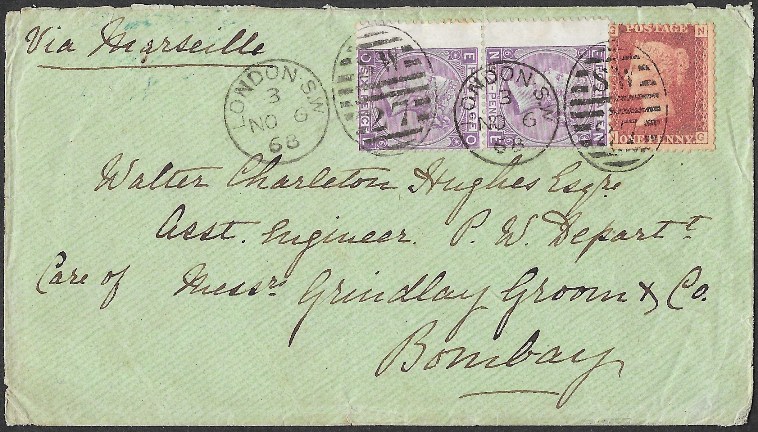 Via Marseille
LONDON·S.W
3
NO 6
68
LONDON·S.W
3
NO 6
68
POSTAGE
ONE PENNY
Walter Charleton Hughes Esqre
Asst. Engineer. P. W. Departt
Care of Messrs Grindlay Groom & Co.
Bombay